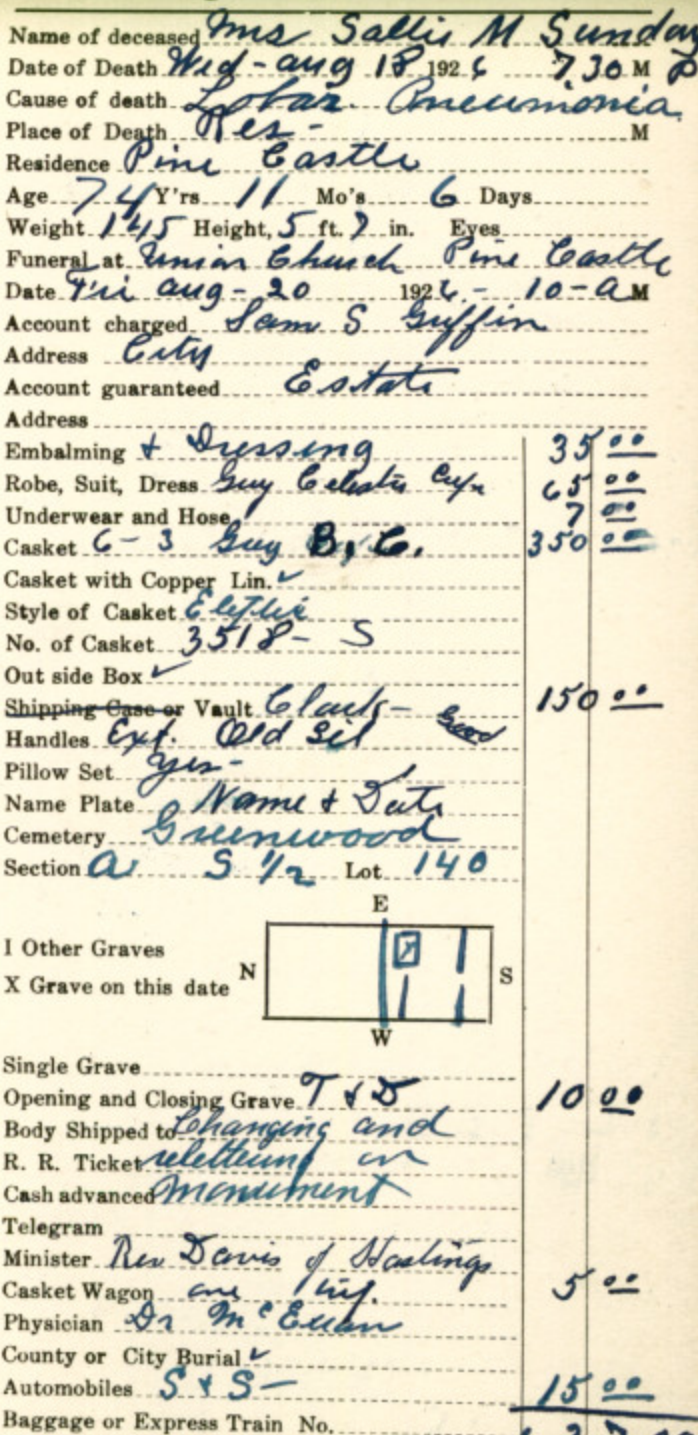 Name of deceased Mrs Sallie M Sunday
Date of Death Wed - Aug 18 1926 7 30 M P
Cause of death Lobar Pneumonia
Place of Death Res - M
Residence Pine Castle
Age 74 Y'rs 11 Mo's 6 Days
Weight 145 Height, 5 ft. 7 in. Eyes
Funeral at Union Church Pine Castle
Date Fri Aug - 20 1926 - 10 - A M
Account charged Sam S Griffin
Address City
Account guaranteed Estate
Address
Embalming & Dressing 35 00
Robe, Suit, Dress Gray 65 00
Underwear and Hose 7 00
Casket 6 - 3 Gray B. C. 350 00
Casket with Copper Lin. ✓
Style of Casket
No. of Casket 3518 - S
Out side Box ✓
Shipping Case or Vault Clark - Good 150 00
Handles Ext. Old Sil
Pillow Set yes -
Name Plate Name & Date
Cemetery Greenwood
Section A S 1/2 Lot 140
E
I Other Graves
X Grave on this date N X S
W
Single Grave
Opening and Closing Grave T & D 10 00
Body Shipped to Changing and
R. R. Ticket relettering on
Cash advanced monument
Telegram
Minister Rev Davis of Hastings
Casket Wagon one 5 00
Physician Dr McEwan
County or City Burial ✓
Automobiles S & S - 15 00
Baggage or Express Train No.